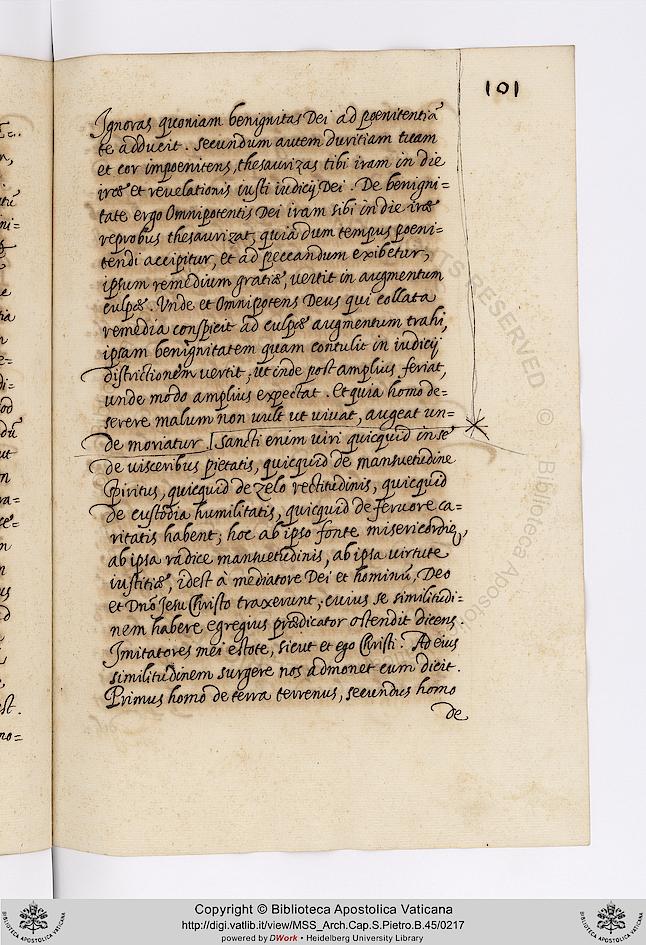 101
Ignoras quoniam benignitas Dei ad poenitentiã
te adducit. secundum autem duritiam tuam
et cor impoenitens, thesaurizas tibi iram in die
iræ et revelationis iusti iudicij Dei. De benigni=
tate ergo Omnipotentis Dei iram sibi in die iræ
reprobus thesaurizat, quia dum tempus poeni=
tendi accipitur, et ad peccandum exibetur,
ipsum remedium gratiæ, vertit in augmentum
culpæ. Unde et Omnipotens Deus qui collata
remedia conspicit ad culpæ augmentum trahi,
ipsam benignitatem quam contulit in iudicij
districtionem vertit; ut inde post amplius feriat,
unde modo amplius expectat. Et quia homo de=
serere malum non vult ut vivat, augeat un=
de moriatur. Sancti enim viri quicquid in se
de visceribus pietatis, quicquid de mansuetudine
spiritus, quicquid de zelo rectitudinis, quicquid
de custodia humilitatis, quicquid de fervore ca=
ritatis habent; hoc ab ipso fonte misericordiæ,
ab ipsa radice mansuetudinis, ab ipsa virtute
iustitiæ, idest à mediatore Dei et hominũ, Deo
et Dnõ Jesu Christo traxerunt; cuius se similitudi=
nem habere egregius prædicator ostendit dicens.
Imitatores mei estote, sicut et ego Christi. Ad eius
similitudinem surgere nos admonet cum dicit.
Primus homo de terra terrenus, secundus homo
de
RIGHTS RESERVED © Biblioteca Apostolica
Copyright © Biblioteca Apostolica Vaticana
http://digi.vatlib.it/view/MSS_Arch.Cap.S.Pietro.B.45/0217
powered by DWork • Heidelberg University Library